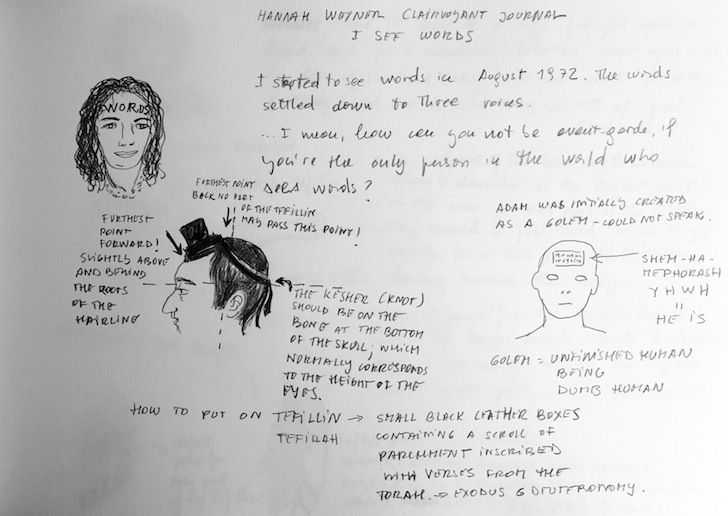 HANNAH WEYNER CLAIRVOYANT JOURNAL
I SEE WORDS
I started to see words in August 1972. The words
settled down to three voices.
... I mean, how can you not be avant-garde, if
you're the only person in the world who
sees words?
WORDS
FURTHEST POINT
BACK NO PART
OF THE TEFILLIN
MAY PASS THIS POINT!
FURTHEST
POINT
FORWARD!
SLIGHTLY ABOVE
AND BEHIND
THE ROOTS
OF THE
HAIRLINE
THE KESHER (KNOT)
SHOULD BE ON THE
BONE AT THE BOTTOM
OF THE SKULL; WHICH
NORMALLY CORRESPONDS
TO THE HEIGHT OF THE
EYES.
ADAM WAS INITIALLY CREATED
AS A GOLEM - COULD NOT SPEAK.
SHEM-HA-
MEPHORASH
YHWH
=
HE IS
GOLEM = UNFINISHED HUMAN
BEING
DUMB HUMAN
HOW TO PUT ON TEFILLIN → SMALL BLACK LEATHER BOXES
TEFILLAH CONTAINING A SCROLL OF
PARCHMENT INSCRIBED
WITH VERSES FROM THE
TORAH. → EXODUS & DEUTERONOMY.